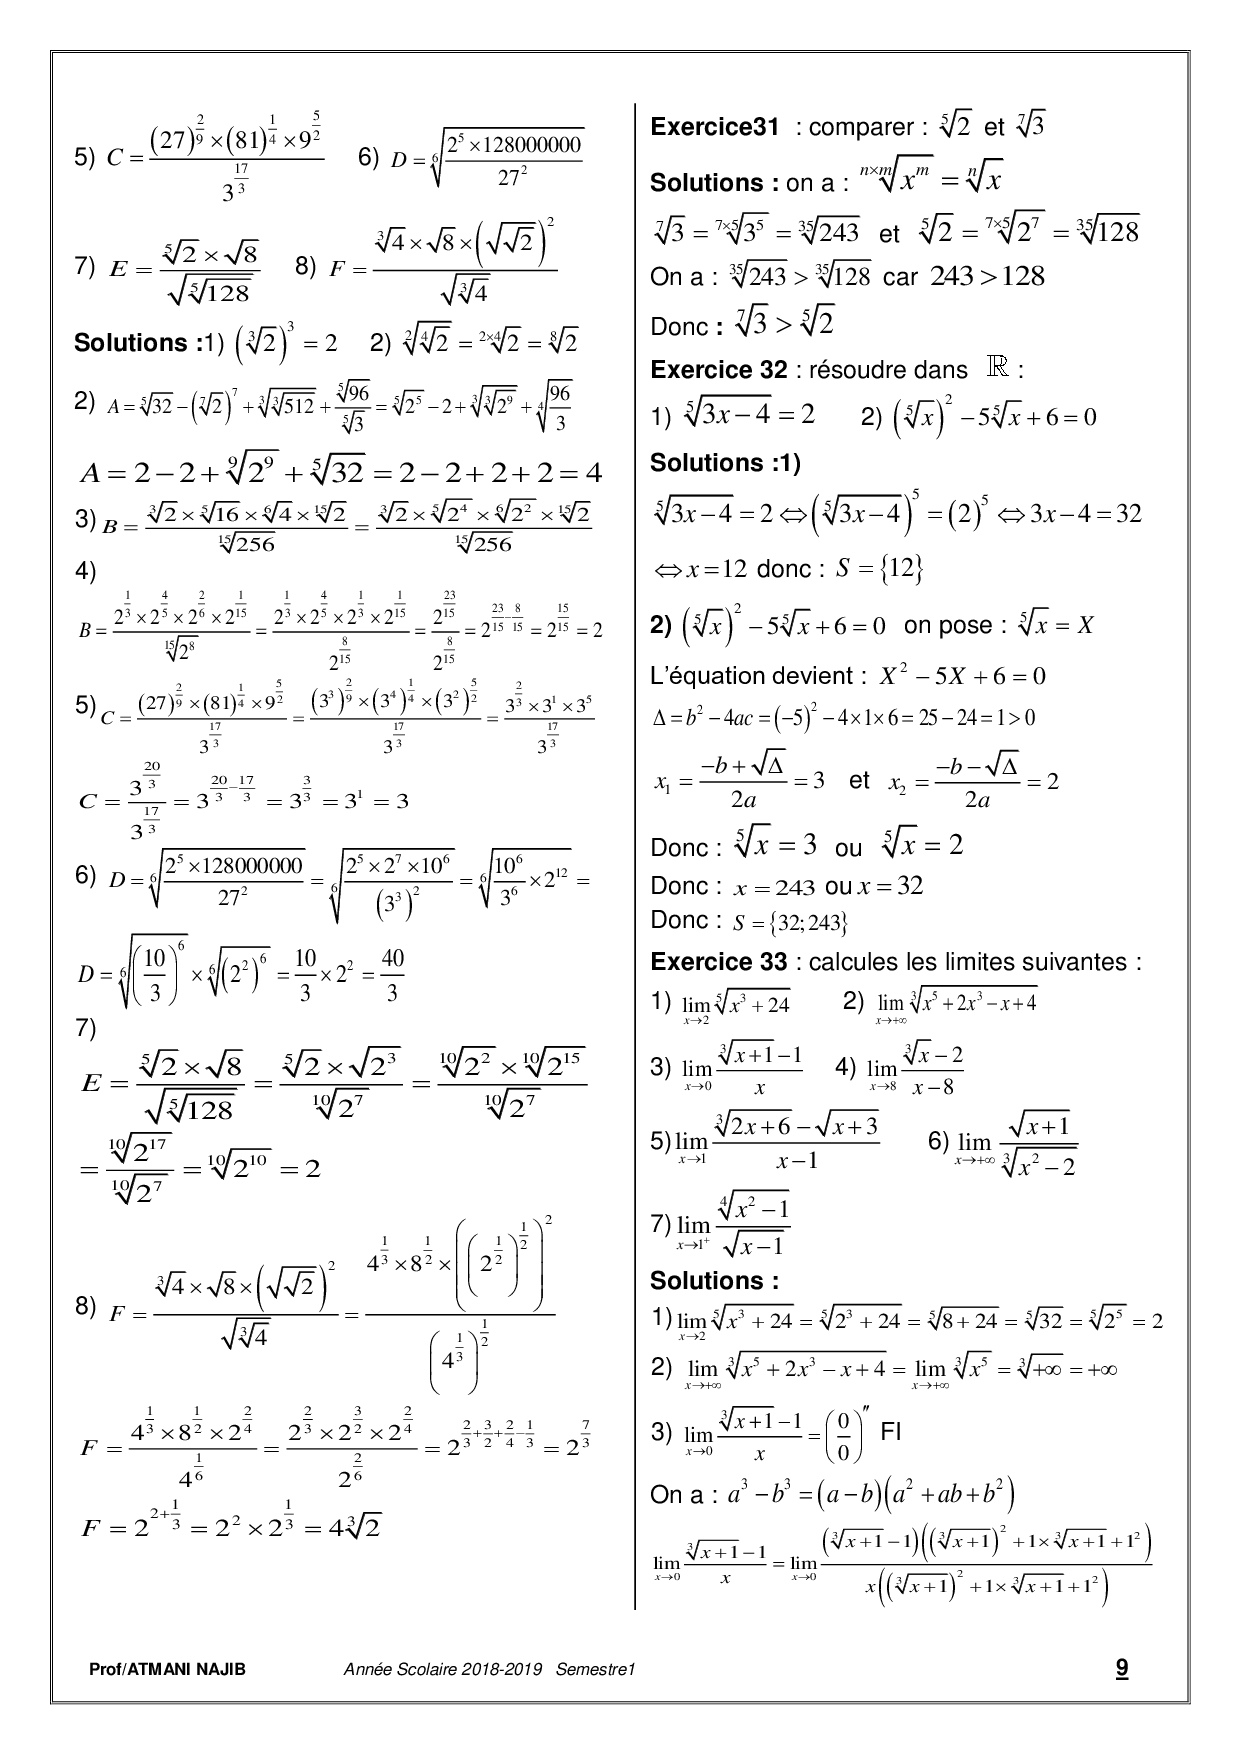 5) $C = \frac{(27)^{\frac{2}{9}} \times (81)^{\frac{1}{4}} \times 9^{\frac{5}{2}}}{3^{\frac{17}{3}}}$ 6) $D = \sqrt[6]{\frac{2^5 \times 128000000}{27^2}}$
7) $E = \frac{\sqrt[5]{2} \times \sqrt{8}}{\sqrt{\sqrt[5]{128}}}$ 8) $F = \frac{\sqrt[3]{4} \times \sqrt{8} \times \left(\sqrt{\sqrt{2}}\right)^2}{\sqrt{\sqrt[3]{4}}}$
Solutions :1) $\left(\sqrt[3]{2}\right)^3 = 2$ 2) $\sqrt[2]{\sqrt[4]{2}} = \sqrt[2\times4]{2} = \sqrt[8]{2}$
2) $A = \sqrt[5]{32} - \left(\sqrt[7]{2}\right)^7 + \sqrt[3]{\sqrt[3]{512}} + \frac{\sqrt[5]{96}}{\sqrt[5]{3}} = \sqrt[5]{2^5} - 2 + \sqrt[3]{\sqrt[3]{2^9}} + \sqrt[4]{\frac{96}{3}}$
$A = 2 - 2 + \sqrt[9]{2^9} + \sqrt[5]{32} = 2 - 2 + 2 + 2 = 4$
3) $B = \frac{\sqrt[3]{2} \times \sqrt[5]{16} \times \sqrt[6]{4} \times \sqrt[15]{2}}{\sqrt[15]{256}} = \frac{\sqrt[3]{2} \times \sqrt[5]{2^4} \times \sqrt[6]{2^2} \times \sqrt[15]{2}}{\sqrt[15]{256}}$
4)
$B = \frac{2^{\frac{1}{3}} \times 2^{\frac{4}{5}} \times 2^{\frac{2}{6}} \times 2^{\frac{1}{15}}}{\sqrt[15]{2^8}} = \frac{2^{\frac{1}{3}} \times 2^{\frac{4}{5}} \times 2^{\frac{1}{3}} \times 2^{\frac{1}{15}}}{2^{\frac{8}{15}}} = \frac{2^{\frac{23}{15}}}{2^{\frac{8}{15}}} = 2^{\frac{23}{15} - \frac{8}{15}} = 2^{\frac{15}{15}} = 2$
5) $C = \frac{(27)^{\frac{2}{9}} \times (81)^{\frac{1}{4}} \times 9^{\frac{5}{2}}}{3^{\frac{17}{3}}} = \frac{(3^3)^{\frac{2}{9}} \times (3^4)^{\frac{1}{4}} \times (3^2)^{\frac{5}{2}}}{3^{\frac{17}{3}}} = \frac{3^{\frac{2}{3}} \times 3^1 \times 3^5}{3^{\frac{17}{3}}}$
$C = \frac{3^{\frac{20}{3}}}{3^{\frac{17}{3}}} = 3^{\frac{20}{3} - \frac{17}{3}} = 3^{\frac{3}{3}} = 3^1 = 3$
6) $D = \sqrt[6]{\frac{2^5 \times 128000000}{27^2}} = \sqrt[6]{\frac{2^5 \times 2^7 \times 10^6}{(3^3)^2}} = \sqrt[6]{\frac{10^6}{3^6} \times 2^{12}} =$
$D = \sqrt[6]{\left(\frac{10}{3}\right)^6} \times \sqrt[6]{(2^2)^6} = \frac{10}{3} \times 2^2 = \frac{40}{3}$
7)
$E = \frac{\sqrt[5]{2} \times \sqrt{8}}{\sqrt{\sqrt[5]{128}}} = \frac{\sqrt[5]{2} \times \sqrt{2^3}}{\sqrt[10]{2^7}} = \frac{\sqrt[10]{2^2} \times \sqrt[10]{2^{15}}}{\sqrt[10]{2^7}}$
$= \frac{\sqrt[10]{2^{17}}}{\sqrt[10]{2^7}} = \sqrt[10]{2^{10}} = 2$
8) $F = \frac{\sqrt[3]{4} \times \sqrt{8} \times \left(\sqrt{\sqrt{2}}\right)^2}{\sqrt{\sqrt[3]{4}}} = \frac{4^{\frac{1}{3}} \times 8^{\frac{1}{2}} \times \left(\left(2^{\frac{1}{2}}\right)^{\frac{1}{2}}\right)^2}{\left(4^{\frac{1}{3}}\right)^{\frac{1}{2}}}$
$F = \frac{4^{\frac{1}{3}} \times 8^{\frac{1}{2}} \times 2^{\frac{2}{4}}}{4^{\frac{1}{6}}} = \frac{2^{\frac{2}{3}} \times 2^{\frac{3}{2}} \times 2^{\frac{2}{4}}}{2^{\frac{2}{6}}} = 2^{\frac{2}{3} + \frac{3}{2} + \frac{2}{4} - \frac{1}{3}} = 2^{\frac{7}{3}}$
$F = 2^{2+\frac{1}{3}} = 2^2 \times 2^{\frac{1}{3}} = 4\sqrt[3]{2}$
Exercice31 : comparer : $\sqrt[5]{2}$ et $\sqrt[7]{3}$
Solutions : on a : $\sqrt[n\times m]{x^m} = \sqrt[n]{x}$
$\sqrt[7]{3} = \sqrt[7\times5]{3^5} = \sqrt[35]{243}$ et $\sqrt[5]{2} = \sqrt[7\times5]{2^7} = \sqrt[35]{128}$
On a : $\sqrt[35]{243} > \sqrt[35]{128}$ car $243 > 128$
Donc : $\sqrt[7]{3} > \sqrt[5]{2}$
Exercice 32 : résoudre dans ℝ :
1) $\sqrt[5]{3x-4} = 2$ 2) $\left(\sqrt[5]{x}\right)^2 - 5\sqrt[5]{x} + 6 = 0$
Solutions :1)
$\sqrt[5]{3x-4} = 2 \Leftrightarrow \left(\sqrt[5]{3x-4}\right)^5 = (2)^5 \Leftrightarrow 3x-4 = 32$
$\Leftrightarrow x = 12$ donc : $S = \{12\}$
2) $\left(\sqrt[5]{x}\right)^2 - 5\sqrt[5]{x} + 6 = 0$ on pose : $\sqrt[5]{x} = X$
L’équation devient : $X^2 - 5X + 6 = 0$
$\Delta = b^2 - 4ac = (-5)^2 - 4 \times 1 \times 6 = 25 - 24 = 1 > 0$
$x_1 = \frac{-b + \sqrt{\Delta}}{2a} = 3$ et $x_2 = \frac{-b - \sqrt{\Delta}}{2a} = 2$
Donc : $\sqrt[5]{x} = 3$ ou $\sqrt[5]{x} = 2$
Donc : $x = 243$ ou $x = 32$
Donc : $S = \{32; 243\}$
Exercice 33 : calcules les limites suivantes :
1) $\lim_{x \to 2} \sqrt[5]{x^3 + 24}$ 2) $\lim_{x \to +\infty} \sqrt[3]{x^5 + 2x^3 - x + 4}$
3) $\lim_{x \to 0} \frac{\sqrt[3]{x+1} - 1}{x}$ 4) $\lim_{x \to 8} \frac{\sqrt[3]{x} - 2}{x - 8}$
5) $\lim_{x \to 1} \frac{\sqrt[3]{2x+6} - \sqrt{x+3}}{x-1}$ 6) $\lim_{x \to +\infty} \frac{\sqrt{x+1}}{\sqrt[3]{x^2-2}}$
7) $\lim_{x \to 1^+} \frac{\sqrt[4]{x^2-1}}{\sqrt{x-1}}$
Solutions :
1) $\lim_{x \to 2} \sqrt[5]{x^3+24} = \sqrt[5]{2^3+24} = \sqrt[5]{8+24} = \sqrt[5]{32} = \sqrt[5]{2^5} = 2$
2) $\lim_{x \to +\infty} \sqrt[3]{x^5+2x^3-x+4} = \lim_{x \to +\infty} \sqrt[3]{x^5} = \sqrt[3]{+\infty} = +\infty$
3) $\lim_{x \to 0} \frac{\sqrt[3]{x+1}-1}{x} = \left(\frac{0}{0}\right)''$ FI
On a : $a^3 - b^3 = (a-b)(a^2+ab+b^2)$
$\lim_{x \to 0} \frac{\sqrt[3]{x+1}-1}{x} = \lim_{x \to 0} \frac{\left(\sqrt[3]{x+1}-1\right)\left(\left(\sqrt[3]{x+1}\right)^2 + 1 \times \sqrt[3]{x+1} + 1^2\right)}{x\left(\left(\sqrt[3]{x+1}\right)^2 + 1 \times \sqrt[3]{x+1} + 1^2\right)}$
Prof/ATMANI NAJIB Année Scolaire 2018-2019 Semestre1 9